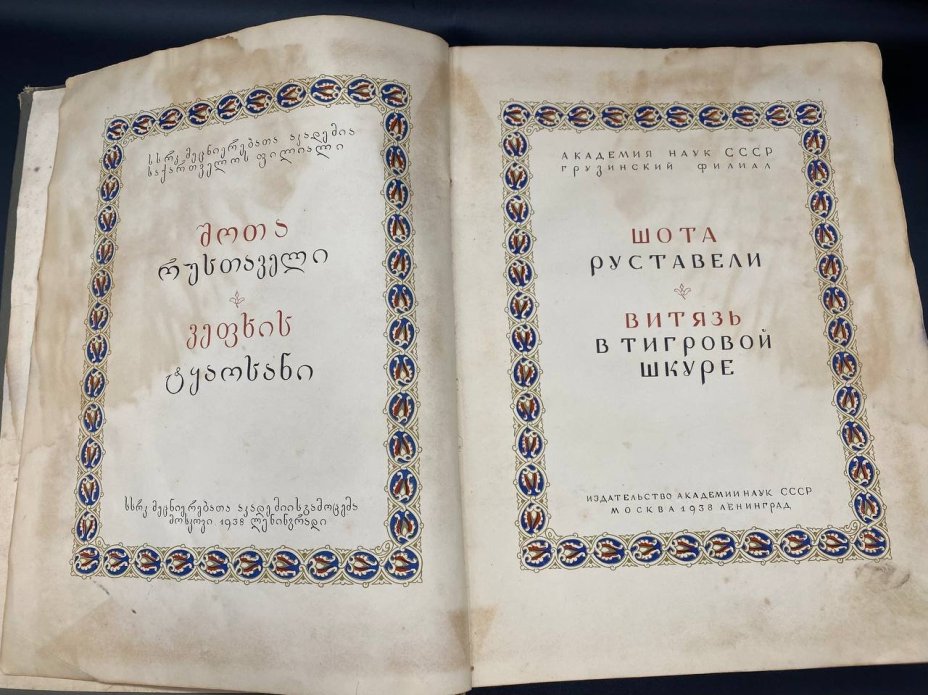 სსრკ მეცნიერებათა აკადემია
საქართველოს ფილიალი
შოთა
რუსთაველი
ვეფხის
ტყაოსანი
სსრკ მეცნიერებათა აკადემიის გამოცემა
მოსკოვი 1938 ლენინგრადი
АКАДЕМИЯ НАУК СССР
ГРУЗИНСКИЙ ФИЛИАЛ
ШОТА
РУСТАВЕЛИ
ВИТЯЗЬ
В ТИГРОВОЙ
ШКУРЕ
ИЗДАТЕЛЬСТВО АКАДЕМИИ НАУК СССР
МОСКВА 1938 ЛЕНИНГРАД